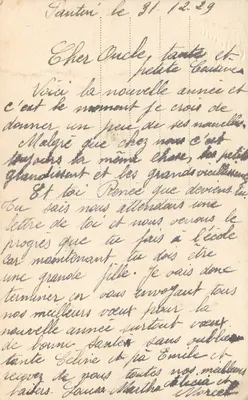 Pantin le 31.12.29
Cher Oncle, tante et
petite Cousine
Voici la nouvelle année et
c'est le moment je crois de
donner un peu de ses nouvelles
Malgré que chez nous c'est
toujours la même chose, les petits
grandissent et les grands vieillissent
Et toi Renée que deviens tu
Tu sais nous attendons une
lettre de toi et nous verrons le
progrès que tu fais a l'école
car maintenant tu dois etre
une grande fille. Je vais donc
terminer en vous envoyant tous
nos meilleurs vœux pour la
nouvelle année surtout vœux
de bonne santée sans oublier
tante Céline et pa Emile et
recevez de nous toutes nos meilleurs
baisers. Louise Marthe et
Marcel